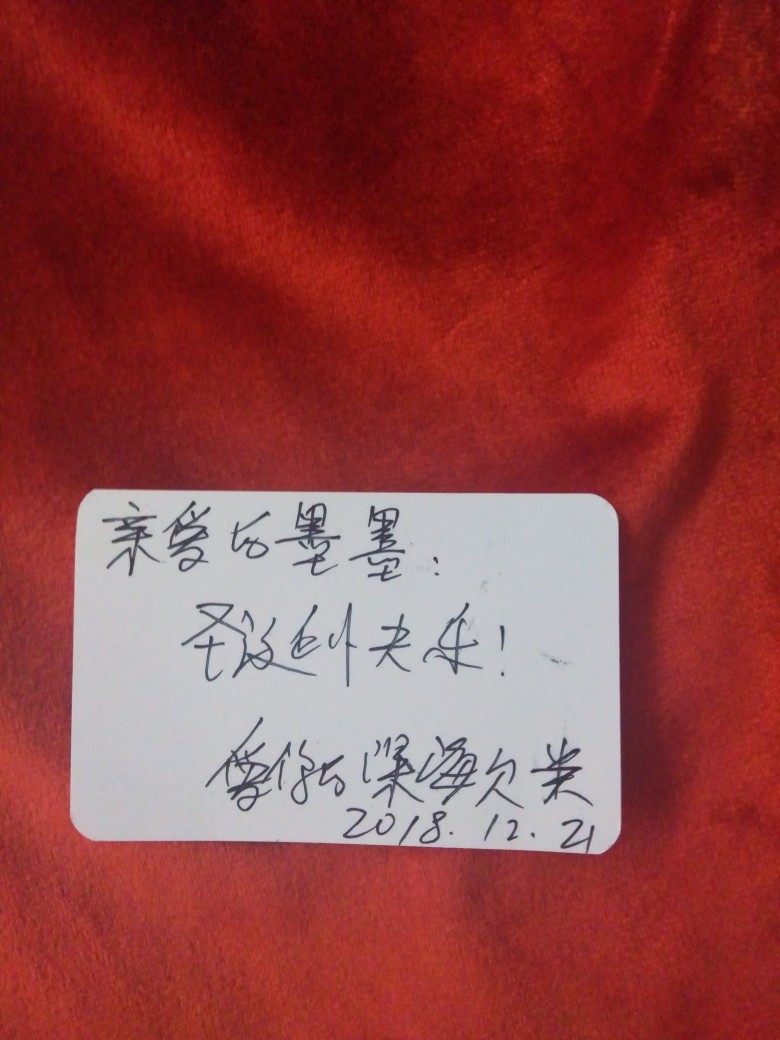 亲爱的墨墨:
圣诞快乐!
爱你的深海欠类
2018.12.21